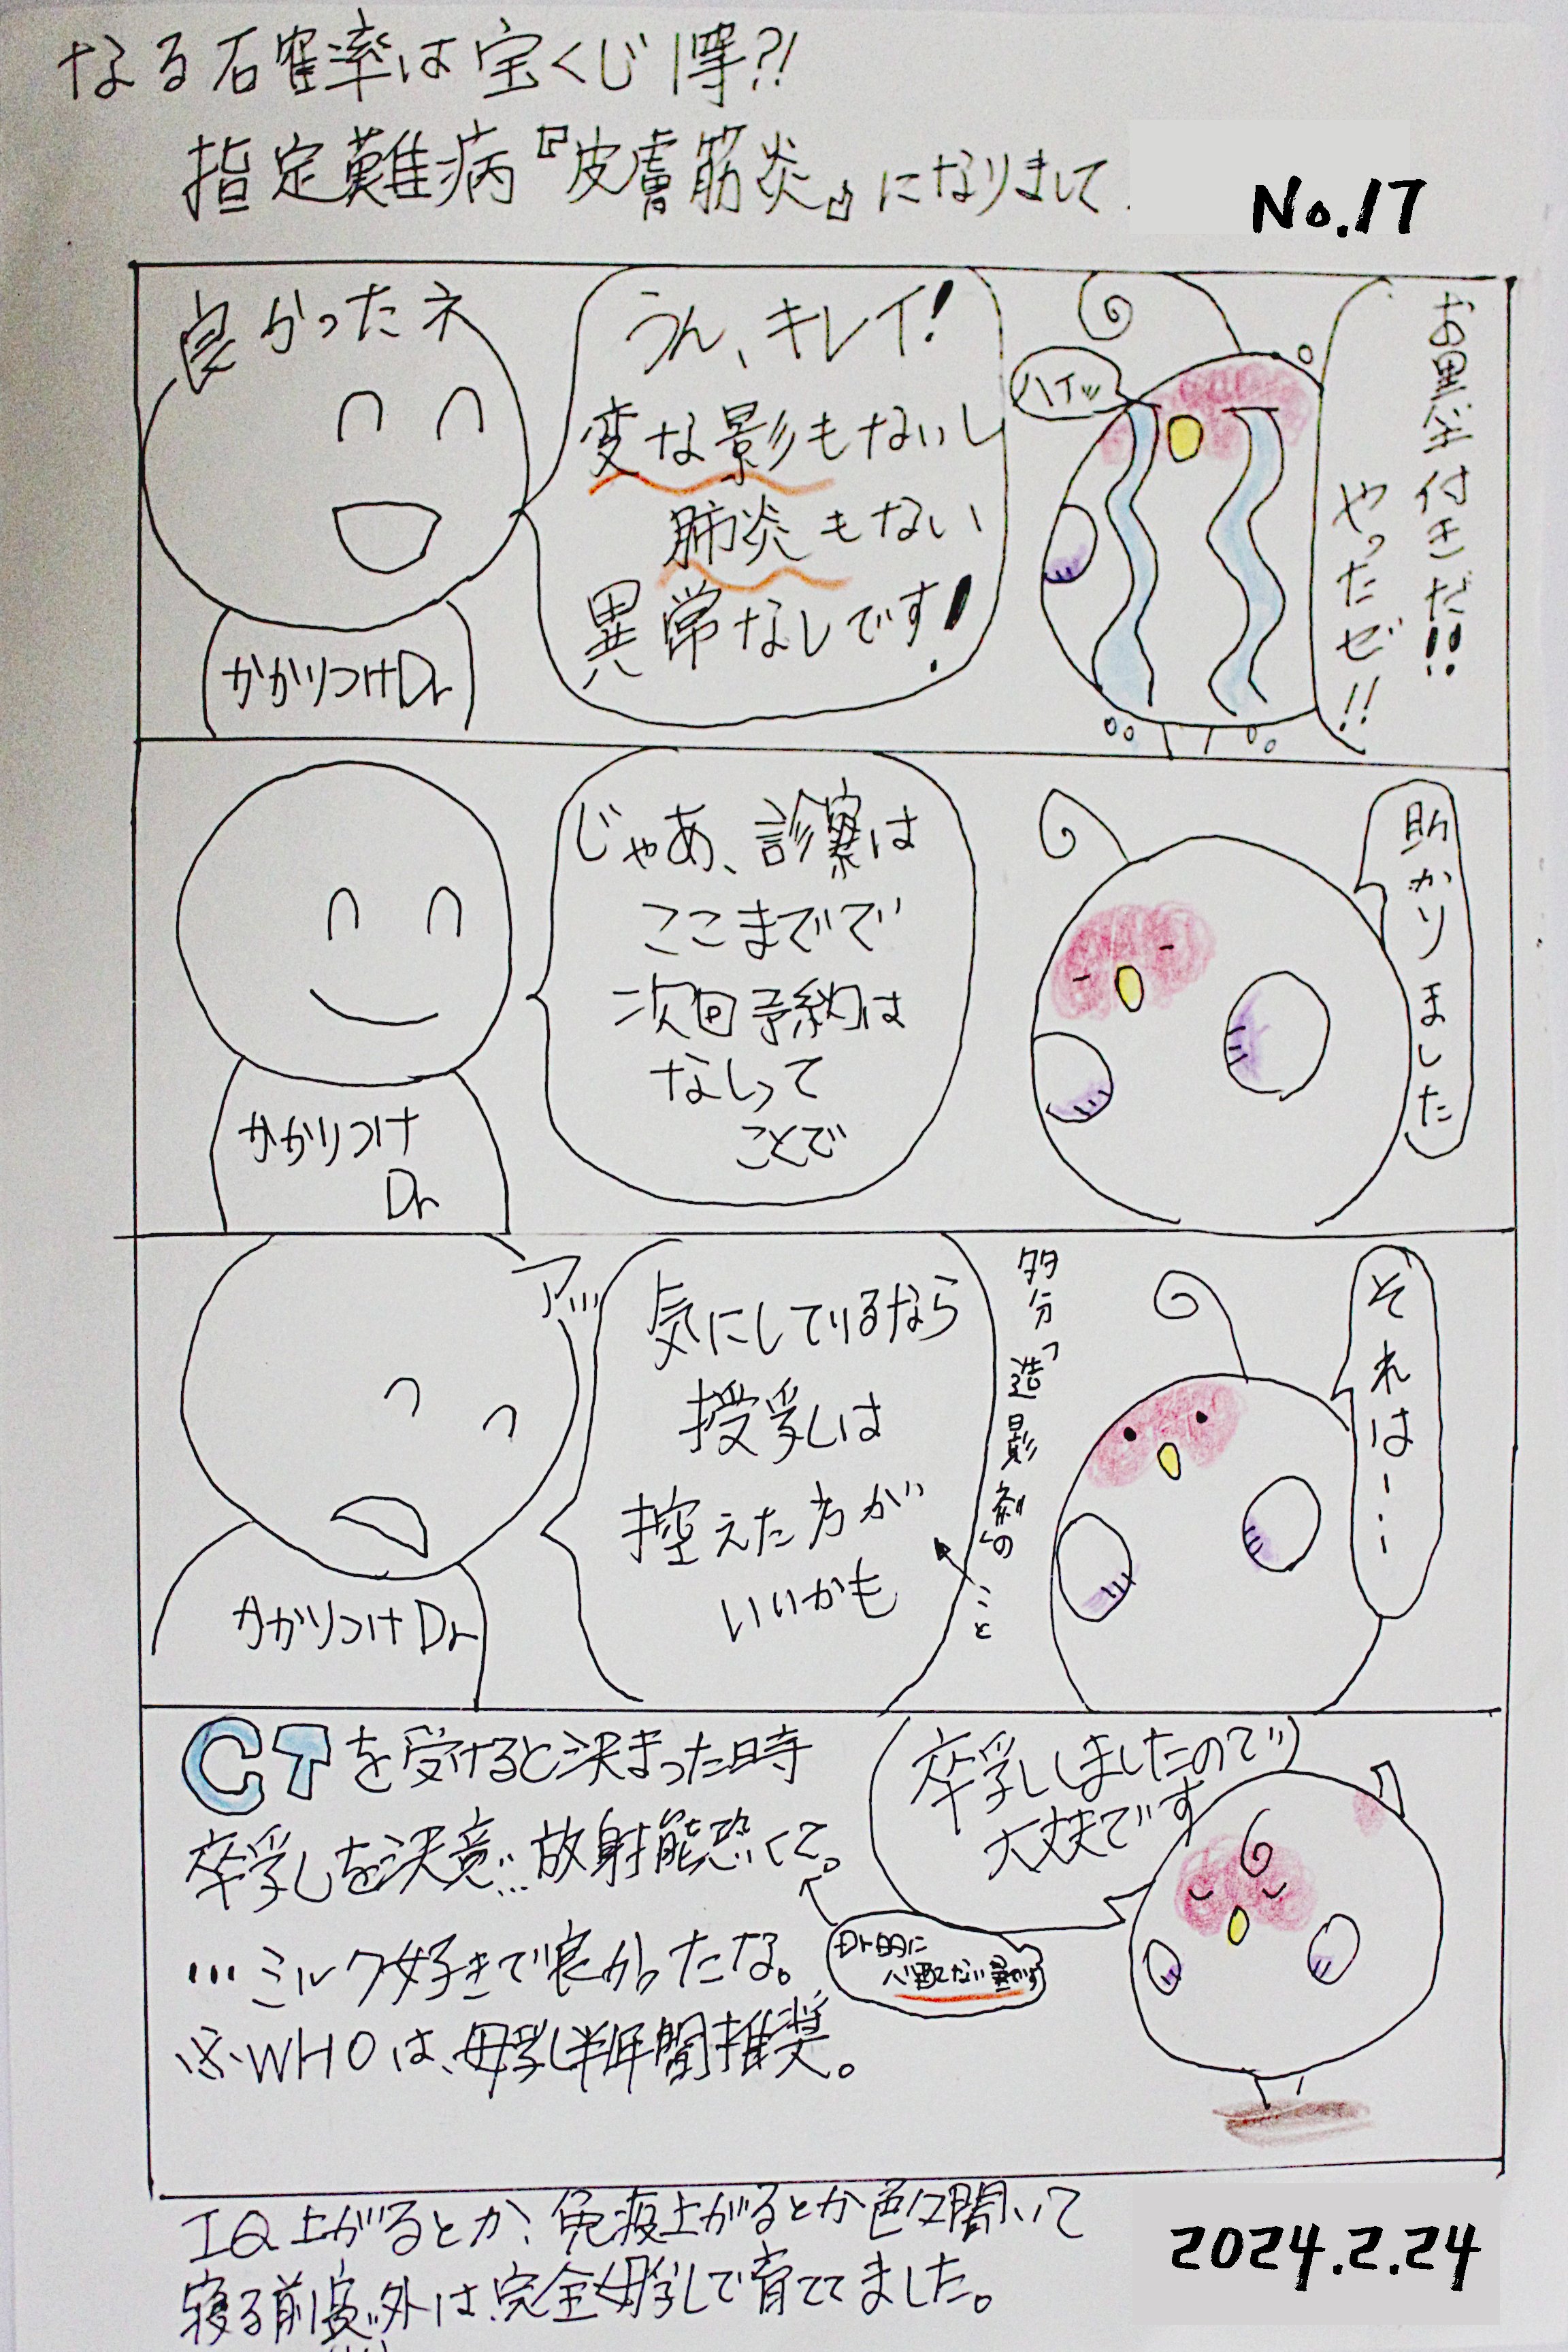 なる確率は宝くじ1等?!
指定難病『皮膚筋炎』になりまして
No.17
お墨付きだ!!
やったぜ!!
ハイッ
うん、キレイ!
変な影もないし
肺炎もない
異常なしです!
良かったネ
かかりつけDr
助かりました
じゃあ、診察は
ここまでで
次回予約は
なしって
ことで
かかりつけ
Dr
それは…
アッ
気にしているなら
授乳は
控えた方が
いいかも
多分「造影剤」の
こと
かかりつけDr
卒乳しましたので
大丈夫です
CTを受けると決まった時
卒乳を決意…放射能恐くて。
Dr的に
心配てない量かず
…ミルク好きで良かったな。
※WHOは、母乳半年間推奨。
IQ上がるとか、免疫上がるとか色々聞いて
寝る前以外は完全母乳で育ててました。
2024.2.24